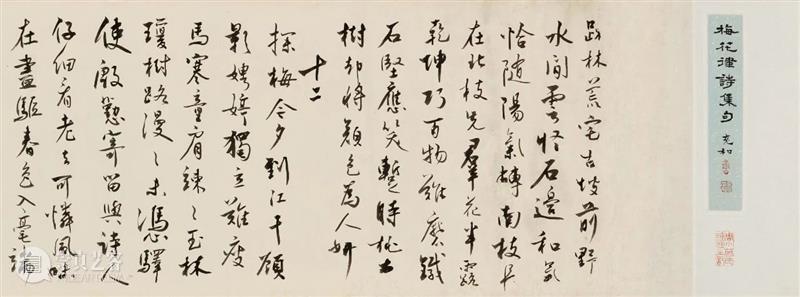 梅花律詩集句 充和
疎林荒宅古坡前野
水閒雲怪石邊和氣
恰随陽氣轉南枝早
在北枝先群花半露
乾坤巧百物難磨鐵
石堅應笑蹔時桃李
樹却将顏色為人妍
十二
探梅今夕到江干顧
影娉婷獨立難疲
馬寒童肩竦〻玉林
瓊樹路漫〻未憑驛
使慇懃寄留與詩人
仔細看老去可憐風味
在盡驅春色入毫端